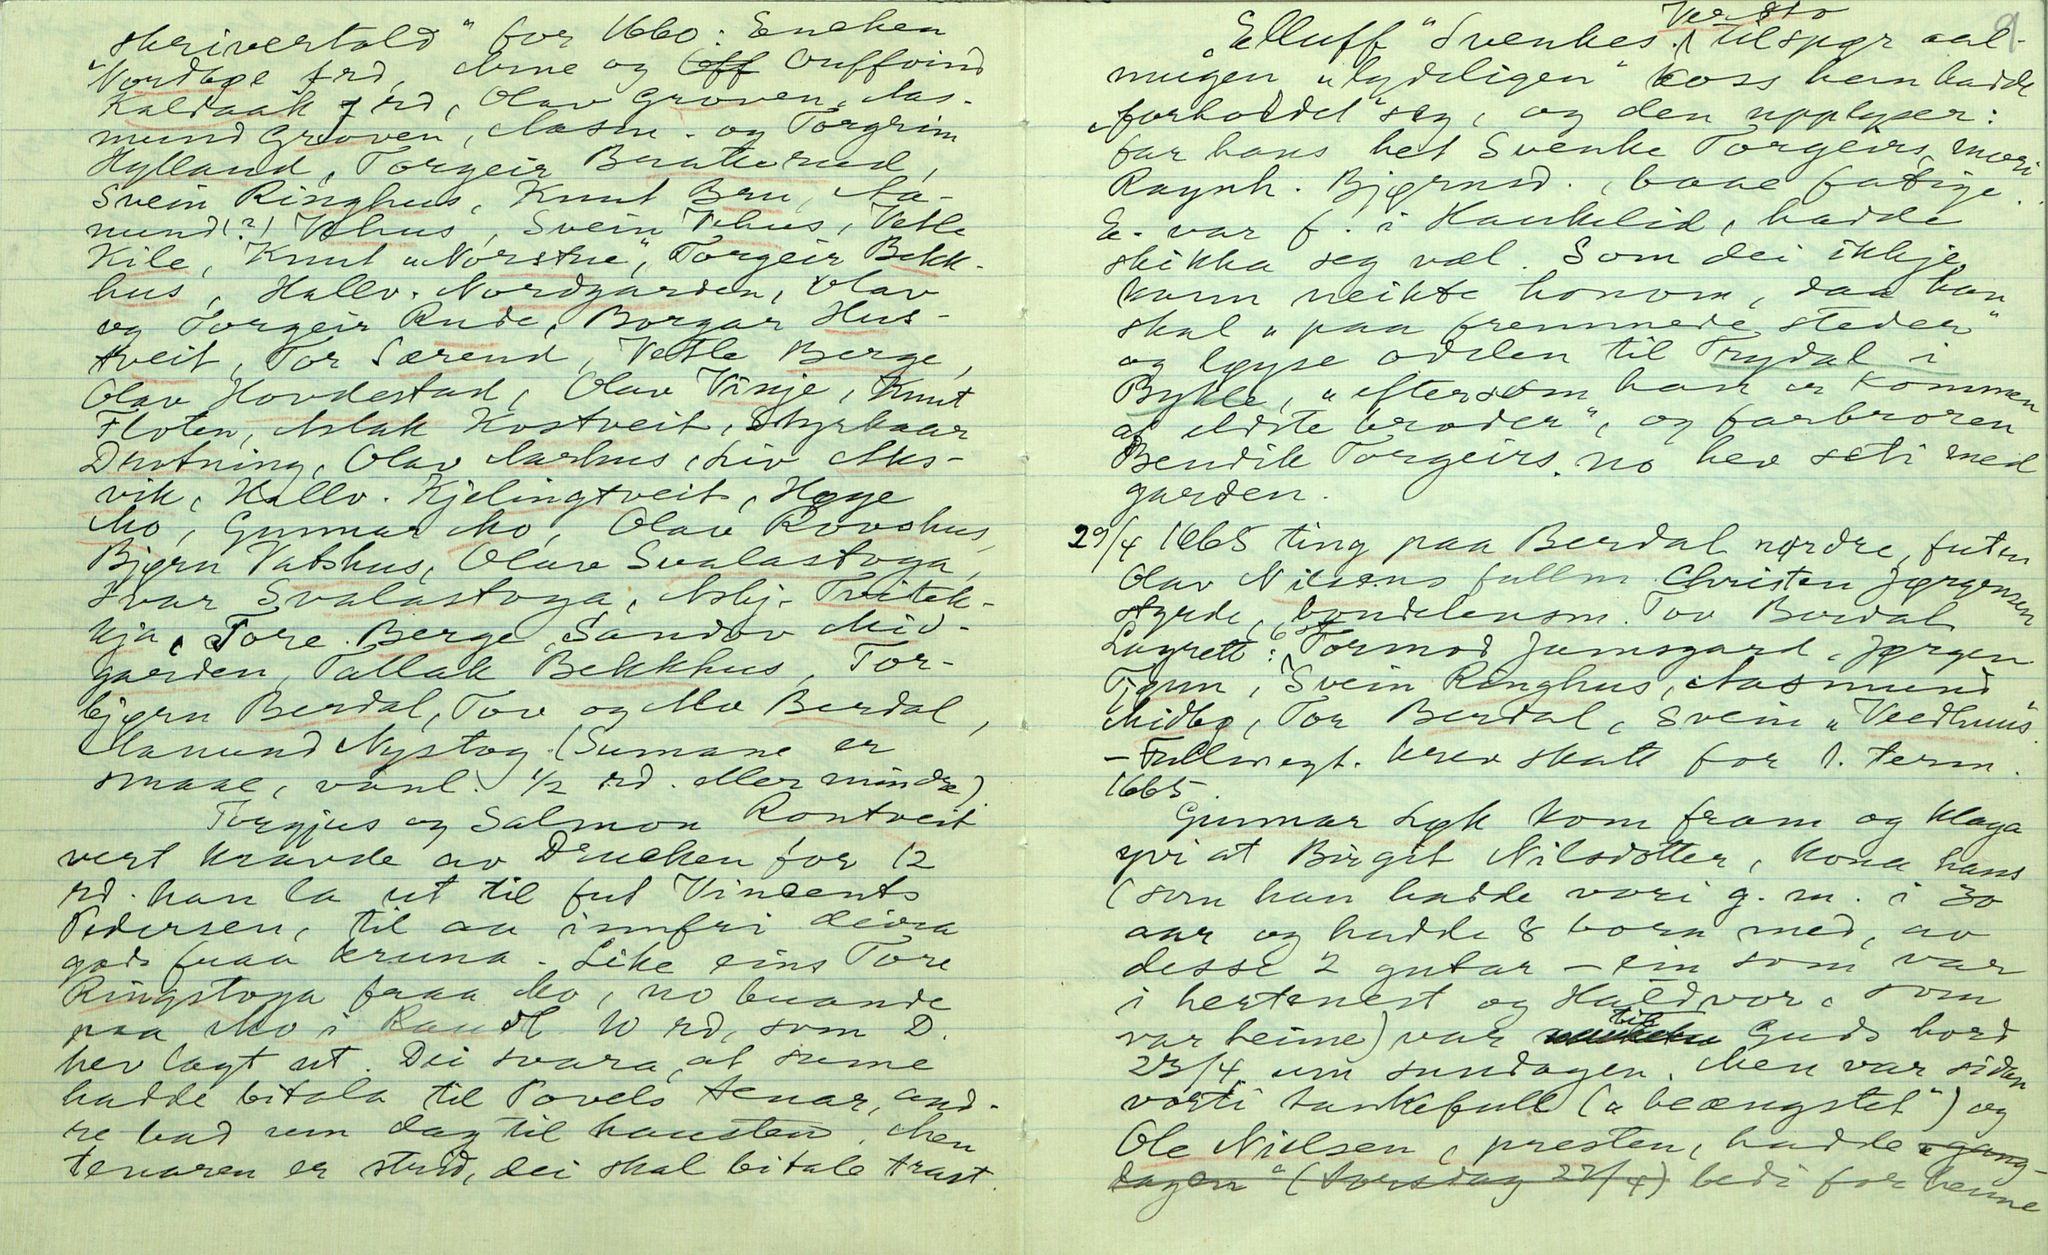 skrivertold" for 1660: Encken
"Nordbøe frd, Arne og Ouffvind
Kaldaak frd, Olav Groven, Aas-
mund Groven, Aasm. og Torgrim
Hylland, Torgeir Bratterud,
Svein Ringhus, Knut Bru, Aa-
mund (?) Vehus, Svein Vehus, Vetle
Kile, Knut "Norstue", Torgeir Bekk-
hus, Hallv. Nordgarden, Olav
og Torgeir Rude, Borgar Hus-
tveit, Tor Særend, Vetle Berge,
Olav Hovdestad, Olav Vinje, Knut
Floten, Aslak Kostveit, Styrkaar
Drotning, Olav Aarhus, Liv Aks-
vik, Hallv. Kjelingtveit, Høye
Mo, Gunnar Mo, Olav Rovshus,
Bjørn Vatshus, Olav Svalastoga,
Ivar Svalastoga, Asbj. Tveitek-
kja, Tore Berge, Sandov Mid-
garden, Tallak Bekkhus, Tor-
bjørn Berdal, Tov og Alv Berdal,
Aamund Nystog (Sumane er
smaae, vanl. 1/2 rd. eller mindre)
Torgjus og Salmon Rontveit
vert kravde av Drucken for 12
rd. han la ut til fut Vincents
Pedersen, til aa innfri deira
gods fraa kruna. Like eins Tore
Ringstoga fraa Mo, no buande
paa Mo i Raudl. 10 rd, som D.
hev lagt ut. Dei svara, at sume
hadde bitala til Povels tenar, and-
re bad um dag til hausten. Men
tenaren er strid, dei skal bitale trast.
9
Versto
"Elluff" Svenkes. tilspør aal-
mugen "lydeligen" koss han hadde
"forholdet" seg, og den upplyser:
far hans het Svenke Torgeirs, mori
Raynh. Bjørnsd., baae fatige.
E. var f. i Haukelid, hadde
skikka seg væl. Som dei ikkje
kunn neikte honom, daa han
skal "paa fremmede steder"
og løyse odelen til Trydal i
Bykle, "eftersom han er kommen
af eldste broder", og farbroren
Bendik Torgeirs. no hev seti med
garden.
29/4 1665 ting paa Berdal nørdre, futen
Olav Nilsens fullm. Christen Jørgensen
styrde, bondelensm. Tov Berdal
Lagrett: Tormod Jamsgard, Jørgen
Tjønn, Svein Ringhus, Aasmund
Midbø, Tor Berdal, Svein "Veedhuus".
- Fullmegt. krev skatt for 1. term.
1665.
Gunnar Løk kom fram og klaga
yvi at Birgit Nilsdotter, kona hans
(som han hadde vori g. m. i 30
aar og hadde 8 born med, av
desse 2 gutar - ein som var
i hertenest og Haldvor, som
var heime) var til Guds bord
23/4 um sundagen. Men var sidan
vorti tankefull ("beængstet") og
Ole Nielsen, presten, hadde "gang-
dagen" (torsdag 27/4) bedi for henne